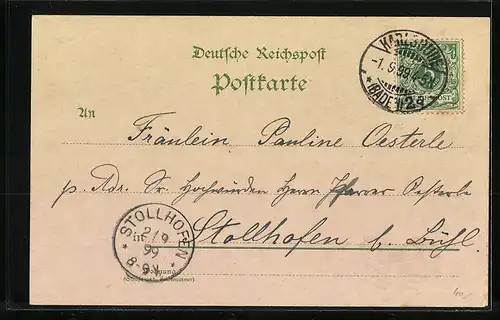 Deutsche Reichspost
Postkarte
KARLSRUHE
-1.9.99.
(BADEN) 2
An
Fräulein Pauline Oesterle
p. Adr. Sr. Hochwürden Herrn Pfarrer Oesterle
in Stollhofen b. Bühl
STOLLHOFEN
2/9
99
8-9V.
Wohnung
(Straße und Hausnummer)